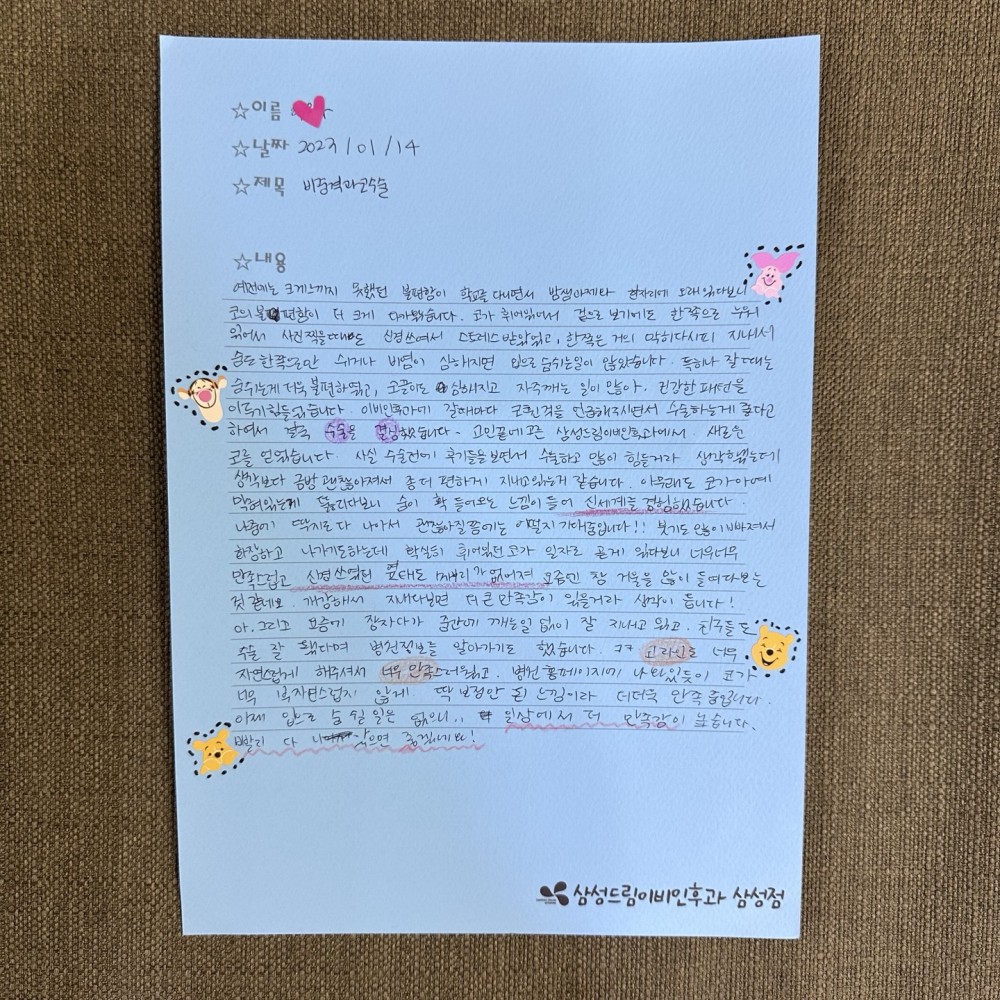 ☆이름
☆날짜 2023/01/14
☆제목 비중격과코수술
☆내용
예전에는 크게느끼지 못했던 불편함이 학교를 다니면서 밤샘아제타 한자리에 오래있다보니
코의불편함이 더 크게 다가왔습니다. 코가 휘어있어서 겉으로 보기에도 한쪽으로 누워
있어서 사진찍을때도 신경쓰여서 스트레스받았었고, 한쪽은 거의 막히다시피 지내서
숨도 한쪽으로만 쉬거나 비염이 심해지면 입으로 숨쉬는일이 많았습니다. 특히나 잘때는
숨쉬는게 더욱 불편하였고, 코골이도 심해지고 자주깨는 일이 많아. 건강한 패턴을
이루기힘들었습니다. 이비인후과에 갈때마다 코뼈 수술하는게 좋다고
하여서 결국 수술을 결심했습니다. 고민끝에고른 삼성드림이비인후과에서. 새로운
코를 얻었습니다. 사실 수술전에 후기들을보면서 수술하고 많이 힘들거라 생각했었는데
생각보다 금방 괜찮아져서 좀더 편하게 지내고있는게 같습니다. 아무래도 코가아예
막혀있는게 뚫리다보니 숨이 확 들어오는 느낌이들어 신세계를 경험했습니다.
나중에 딱지도 다 나아서 괜찮아질쯤에는 어떨지 기대중입니다!! 붓기도 많이빠져서
화장하고 나가기도하는데 확실히 휘어있던 코가 일자로 곧게 있다보니 너무너무
만족스럽고 신경쓰였던 형태도 매부리가 없어져 요즘엔 참 거울을 많이 들여다보는
것 같네요. 개강해서 지내다보면 더 큰 만족감이 있을거라 생각이 듭니다!
아. 그리고 요즘에 잠자다가 중간에 깨는일 없이 잘 지내고 있고. 친구들도
수술 잘 됐다며 병원정보를 알아가기도 했습니다. ㅋㅋ 코라인도 너무
자연스럽게 해주셔서 너무 만족스러웠고. 병원 홈페이지에 나와있듯이 코가
너무 부자연스럽지 않게 딱 보정만 된 느낌이라 더더욱 만족중입니다.
이제 입으로 숨 쉴 일은 없으니.. 일상에서 더 만족감이 높습니다.
빨리 다 나았으면 좋겠네요!
삼성드림이비인후과 삼성점